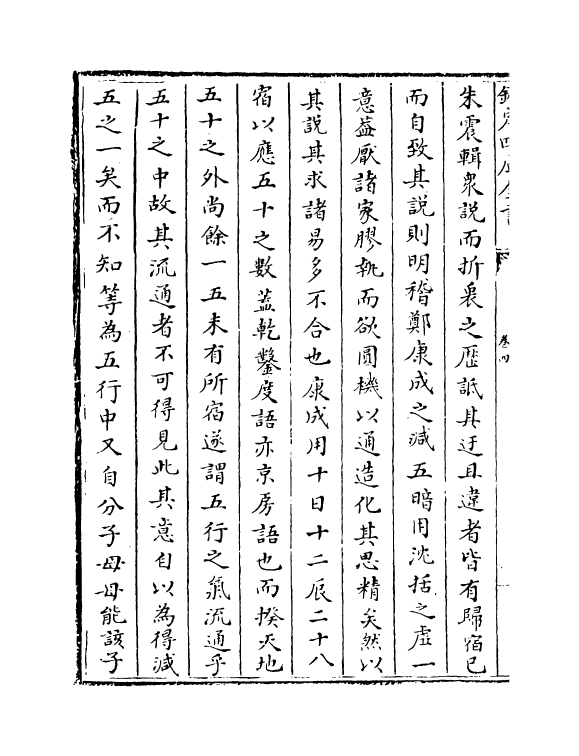 欽定四庫全書
卷四
朱震輯衆説而折衷之歴詆其迂且違者皆有歸宿已
而自致其説則明稽鄭康成之減五暗用沈括之虚一
意葢厭諸家膠執而欲圓機以通造化其思精矣然以
其説其求諸易多不合也康成用十日十二辰二十八
宿以應五十之數葢乾鑿度語亦京房語也而揆天地
五十之外尚餘一五未有所宿遂謂五行之氣流通乎
五十之中故其流通者不可得見此其意自以為得減
五之一矣而不知等為五行中又自分子母母能該子